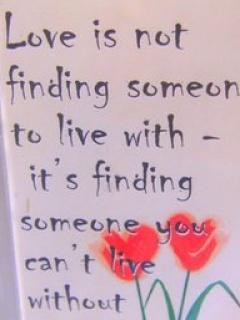 Love is not
finding someon
to live with -
it's finding
someone you
can't live
without